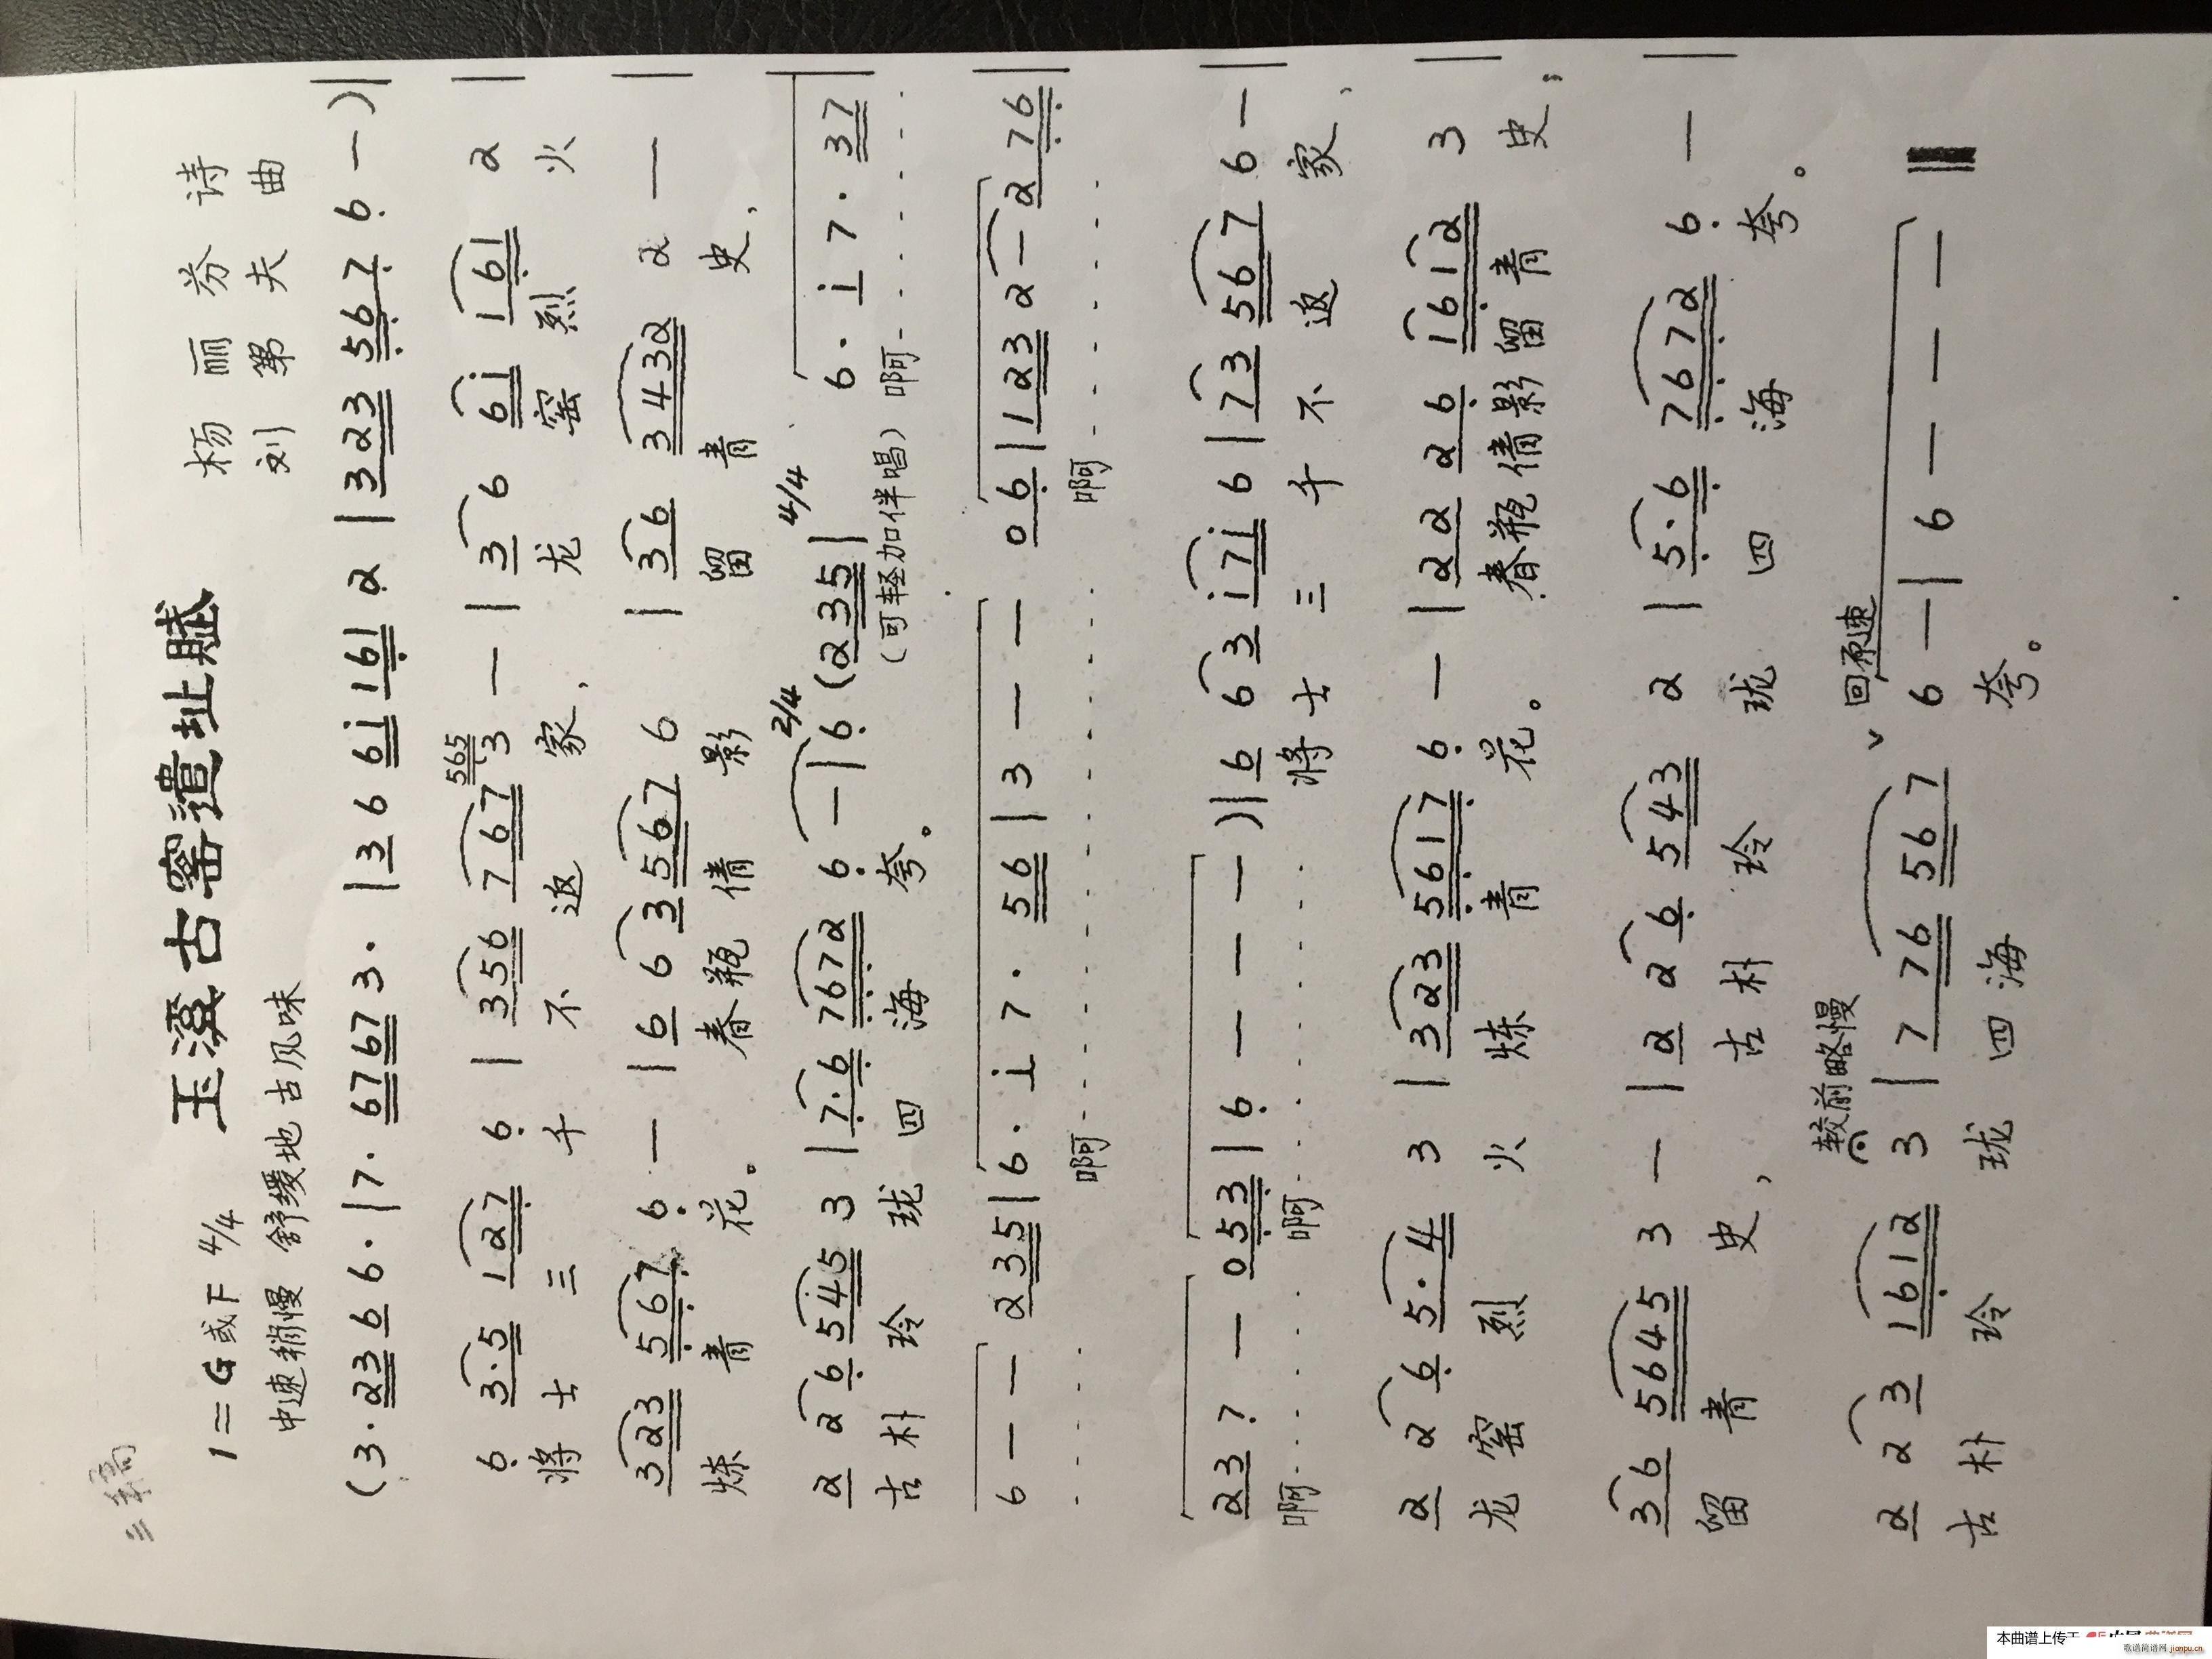 三稿
玉溪古窑遗址赋
1=G或F 4/4
杨 丽 芬 诗
中速稍慢 舒缓地 古风味
刘 第 夫 曲
(3· 23 6 6· | 7· 6767 3· | 3 6 6i 161 2 | 323 567 6 - ) |
6 3·5 127 6 | 356 767 565 3 - | 3 6 6i 161 2 |
将 士 三 千 不 返 家, 龙 窑 烈 火
323 567 6 - | 6 6 3 567 6 | 3 6 3432 2 - |
炼 青 花。 春 瓶 倩 影 留 青 史,
2 2 6 545 3 | 7·6 7672 6 - | 2/4 6 (235 | 4/4 6· i 7· 37 |
古 朴 玲 珑 四 海 夸。 (可轻加伴唱) 啊
6 - - 235 | 6· i 7· 56 | 3 - - 06 | 123 2 - 276 |
啊 啊
237 - 053 | 6 - - - ) | 6 6 3 i7i 6 | 73 567 6 - |
啊 啊 将 士 三 千 不 返 家,
2 2 6 5·4 3 | 323 5617 6 - | 22 26 161612 3 |
龙 窑 烈 火 炼 青 花。 春瓶倩影留 青 史;
36 5645 3 - | 2 2 6 543 2 | 5·6 7672 6 - |
留 青 史, 古 朴 玲 珑 四 海 夸。
较前略慢 回原速
2 2 3 1612 3 | 7 76 567 6 - | 6 - - - ‖
古 朴 玲 珑 四 海 夸。
本曲谱上传于
歌谱简谱网 jianpu.cn